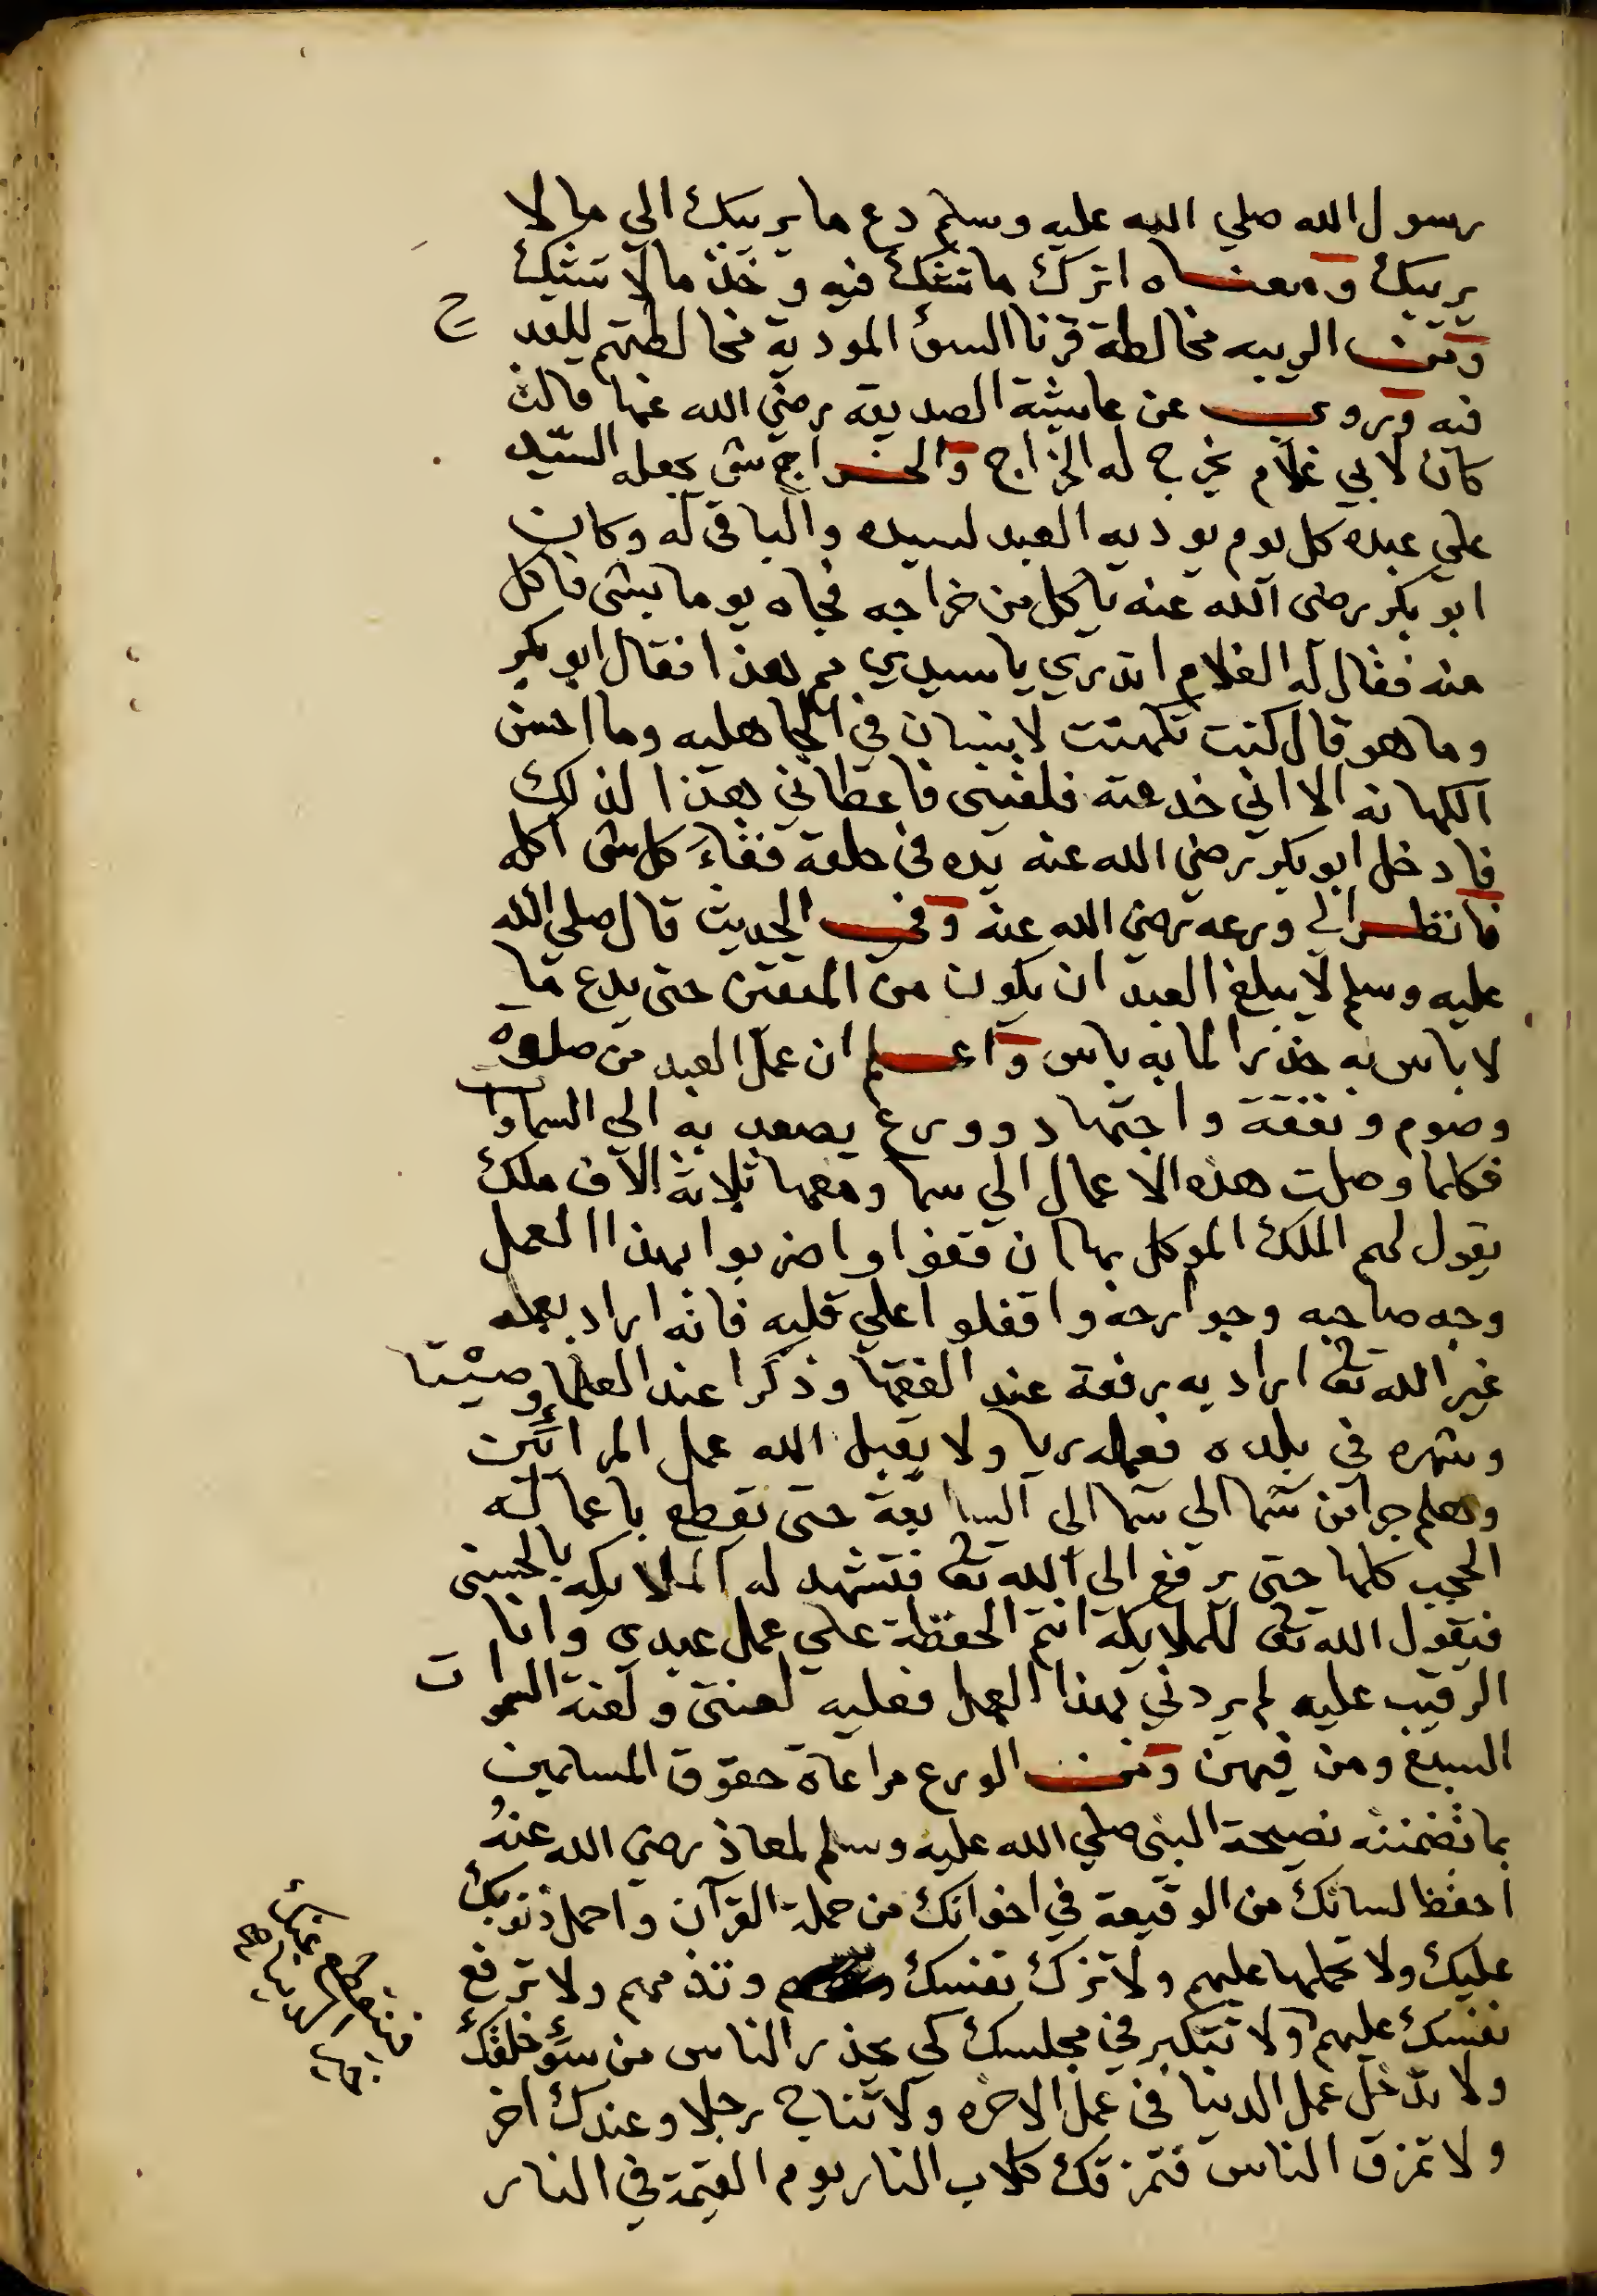 رسول الله صلي الله عليه وسلم دع ما يريبك الي ما لا
يريبك ومعناه اترك ما تشك فيه وخذ ما لا تشك
ومن الريبه مخالطة قرنا السؤ المودية مخالطتهم للقدح
فيه وروي عن عايشة الصديقة رضي الله عنها قالت
كان لابي غلام يخرج له الخراج والخراج شي يجعله السيد
علي عبده كل يوم يوديه العبد لسيده والباقي له وكان
ابو بكر رضي الله عنه ياكل من خراجه فجاه يوما بشي فاكل
منه فقال له الغلام اتدري يا سيدي مم هذا فقال ابو بكر
وما هو قال كنت تكهنت لانسان في الجاهليه وما احسن
الكهانه الا اني خدعته فلقيني فاعطاني هذا لذلك
فادخل ابو بكر رضي الله عنه يده في حلقه فقاء كل شي اكله
فانظر الي ورعه رضي الله عنه وفي الحديث قال صلي الله
عليه وسلم لا يبلغ العبد ان يكون من المتقين حتى يدع ما
لا باس به حذرا لما به باس واعلم ان عمل العبد من صلوة
وصوم ونفقة واجتهاد وورع يصعد به الي السماوات
فكلما وصلت هذه الاعمال الي سما ومعها ثلاثة الاف ملك
يقول لهم الملك الموكل بها ان قفوا واضربوا بهذا العمل
وجه صاحبه وجوارحه واقفلوا علي قلبه فانه اراد بعمله
غير الله تعا اراد به رفعة عند الفقها وذكرا عند العلما وصيتا
وشهره في بلده فعمله ريا ولا يقبل الله عمل المرائين
وهلم جرا من سما الي سما الي السابعة حتى تقطع باعماله
الحجب كلها حتى يرفع الي الله تعا فتشهد له الملايكه بالحسنى
فيقول الله تعا للملايكة انتم الحفظة علي عمل عبدي وانا
الرقيب عليه لم يردني بهذا العمل فعليه لعنتي ولعنة السموات
السبع ومن فيهن ومن الورع مراعاة حقوق المسلمين
بما تضمنته نصيحة النبي صلي الله عليه وسلم لمعاذ رضي الله عنهُ
احفظ لسانك من الوقيعة في اخوانك من حملة القرآن واحمل ذنوبك
عليك ولا تحملها عليهم ولا تزك نفسك وتذمهم ولا ترفع
نفسك عليهم ولا تتكبر في مجلسك كي يحذر الناس من سوء خلقك
ولا تدخل عمل الدنيا في عمل الاخره ولا تناج رجلا وعندك اخر
ولا تمزق الناس فتمزقك كلاب النار يوم القيمة في النار